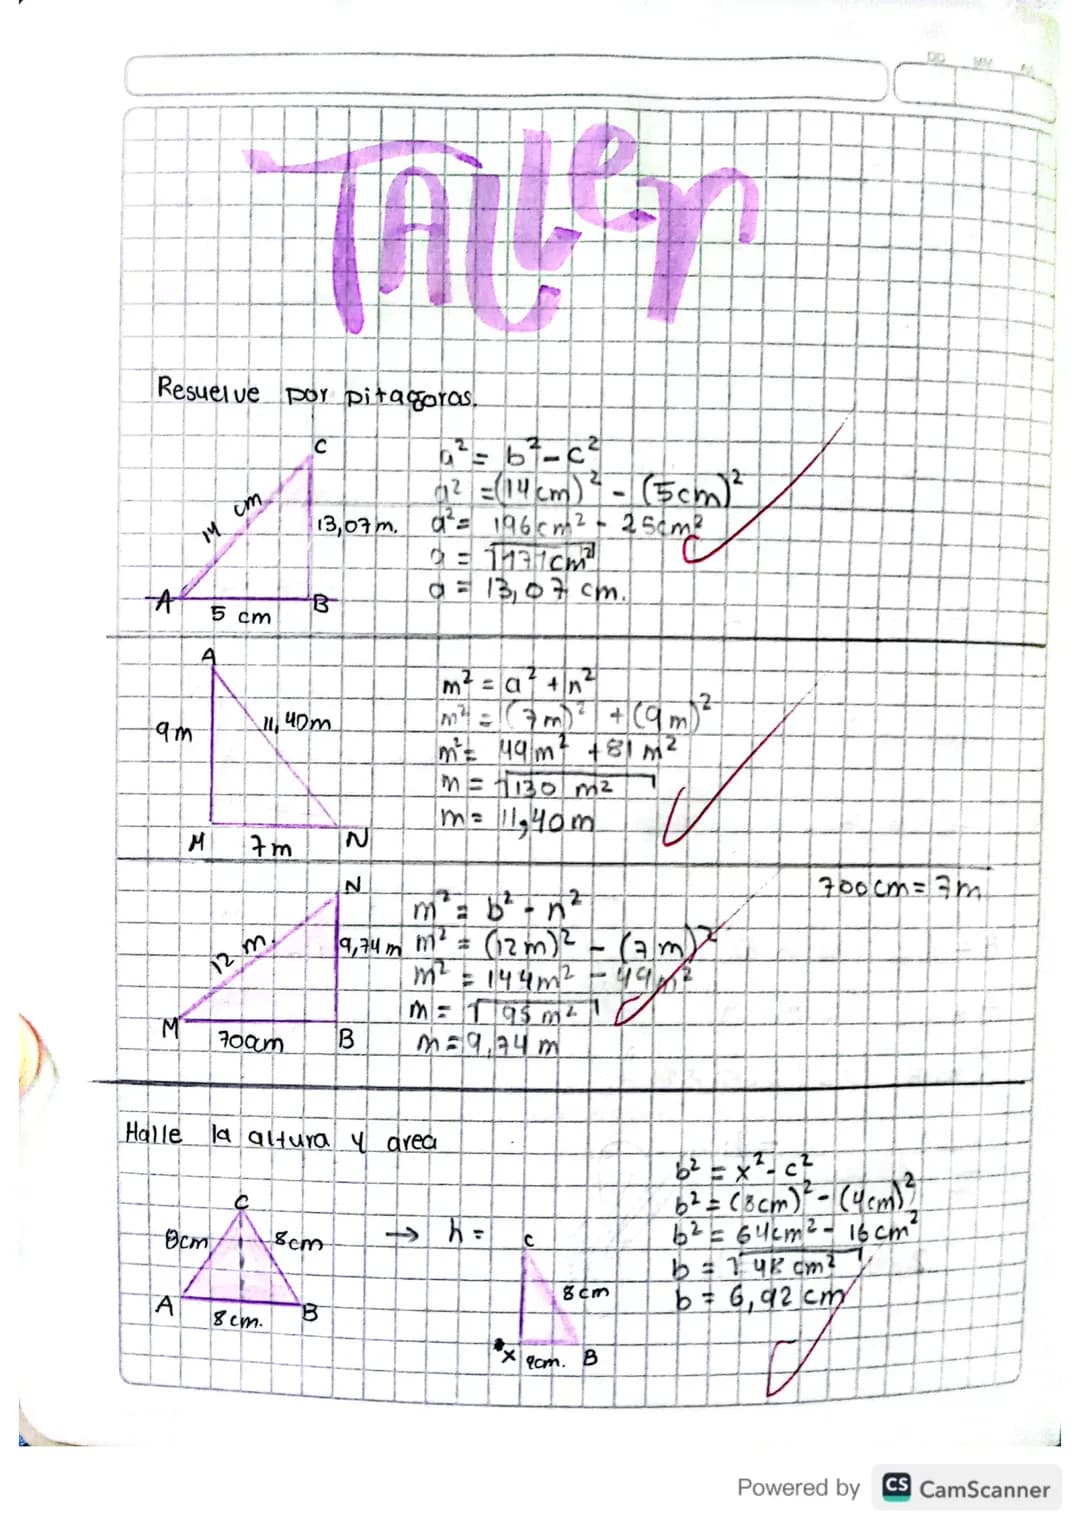 DD MM AA
TALLER
Resuelve por pitagoras.
C
14 cm
13,07m.
A
5 cm
B
a² = b² - c²
a² = (14cm)² - (5cm)²
a² = 196cm² - 25cm²
a = √171cm²
a = 13,07 cm.
A
9m
11,40m
M
7m
N
m² = a² + n²
m² = (7m)² + (9m)²
m² = 49m² + 81 m²
m = √130 m²
m = 11,40m
700cm = 7m
N
12 m.
9,74m
M
700cm
B
m² = b² - n²
m² = (12m)² - (7m)²
m² = 144m² - 49m²
m = √95m²
m = 9,74m
Halle la altura y area
C
8cm
8cm
A
8cm.
B
→ h =
C
8cm
x
4cm.
B
b² = x² - c²
b² = (8cm)² - (4cm)²
b² = 64cm² - 16cm²
b = √48 cm²
b = 6,92 cm
Powered by CS CamScanner